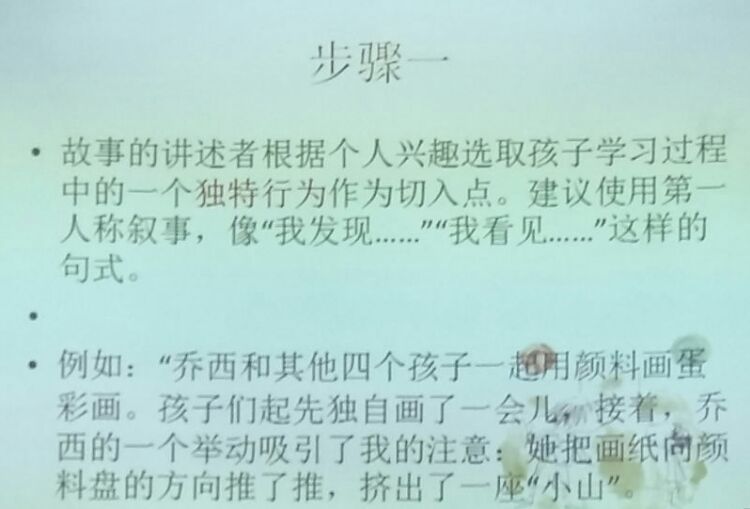 步骤一
• 故事的讲述者根据个人兴趣选取孩子学习过程
中的一个独特行为作为切入点。建议使用第一
人称叙事，像“我发现……”“我看见……”这样的
句式。
•
• 例如：“乔西和其他四个孩子一起用颜料画蛋
彩画。孩子们起先独自画了一会儿，接着，乔
西的一个举动吸引了我的注意：她把画纸向颜
料盘的方向推了推，挤出了一座“小山”。